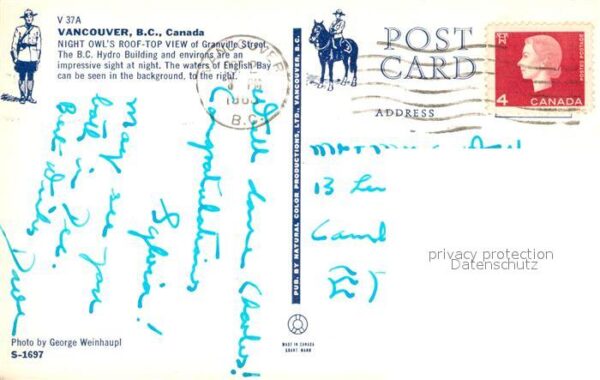 V 37A
VANCOUVER, B.C., Canada
NIGHT OWL'S ROOF-TOP VIEW of Granville Street.
The B.C. Hydro Building and environs are an
impressive sight at night. The waters of English Bay
can be seen in the background, to the right.
VANCOUVER
B.C.
POST
CARD
ADDRESS
4
CANADA
POSTES POSTAGE
Well done Charles!
Congratulations
Sylvia!
May see you
both in Dec.
Best Wishes
Dave
13
privacy protection
Datenschutz
PUB. BY NATURAL COLOR PRODUCTIONS, LTD., VANCOUVER, B.C.
MADE IN CANADA
GRANT MANN
Photo by George Weinhaupl
S-1697